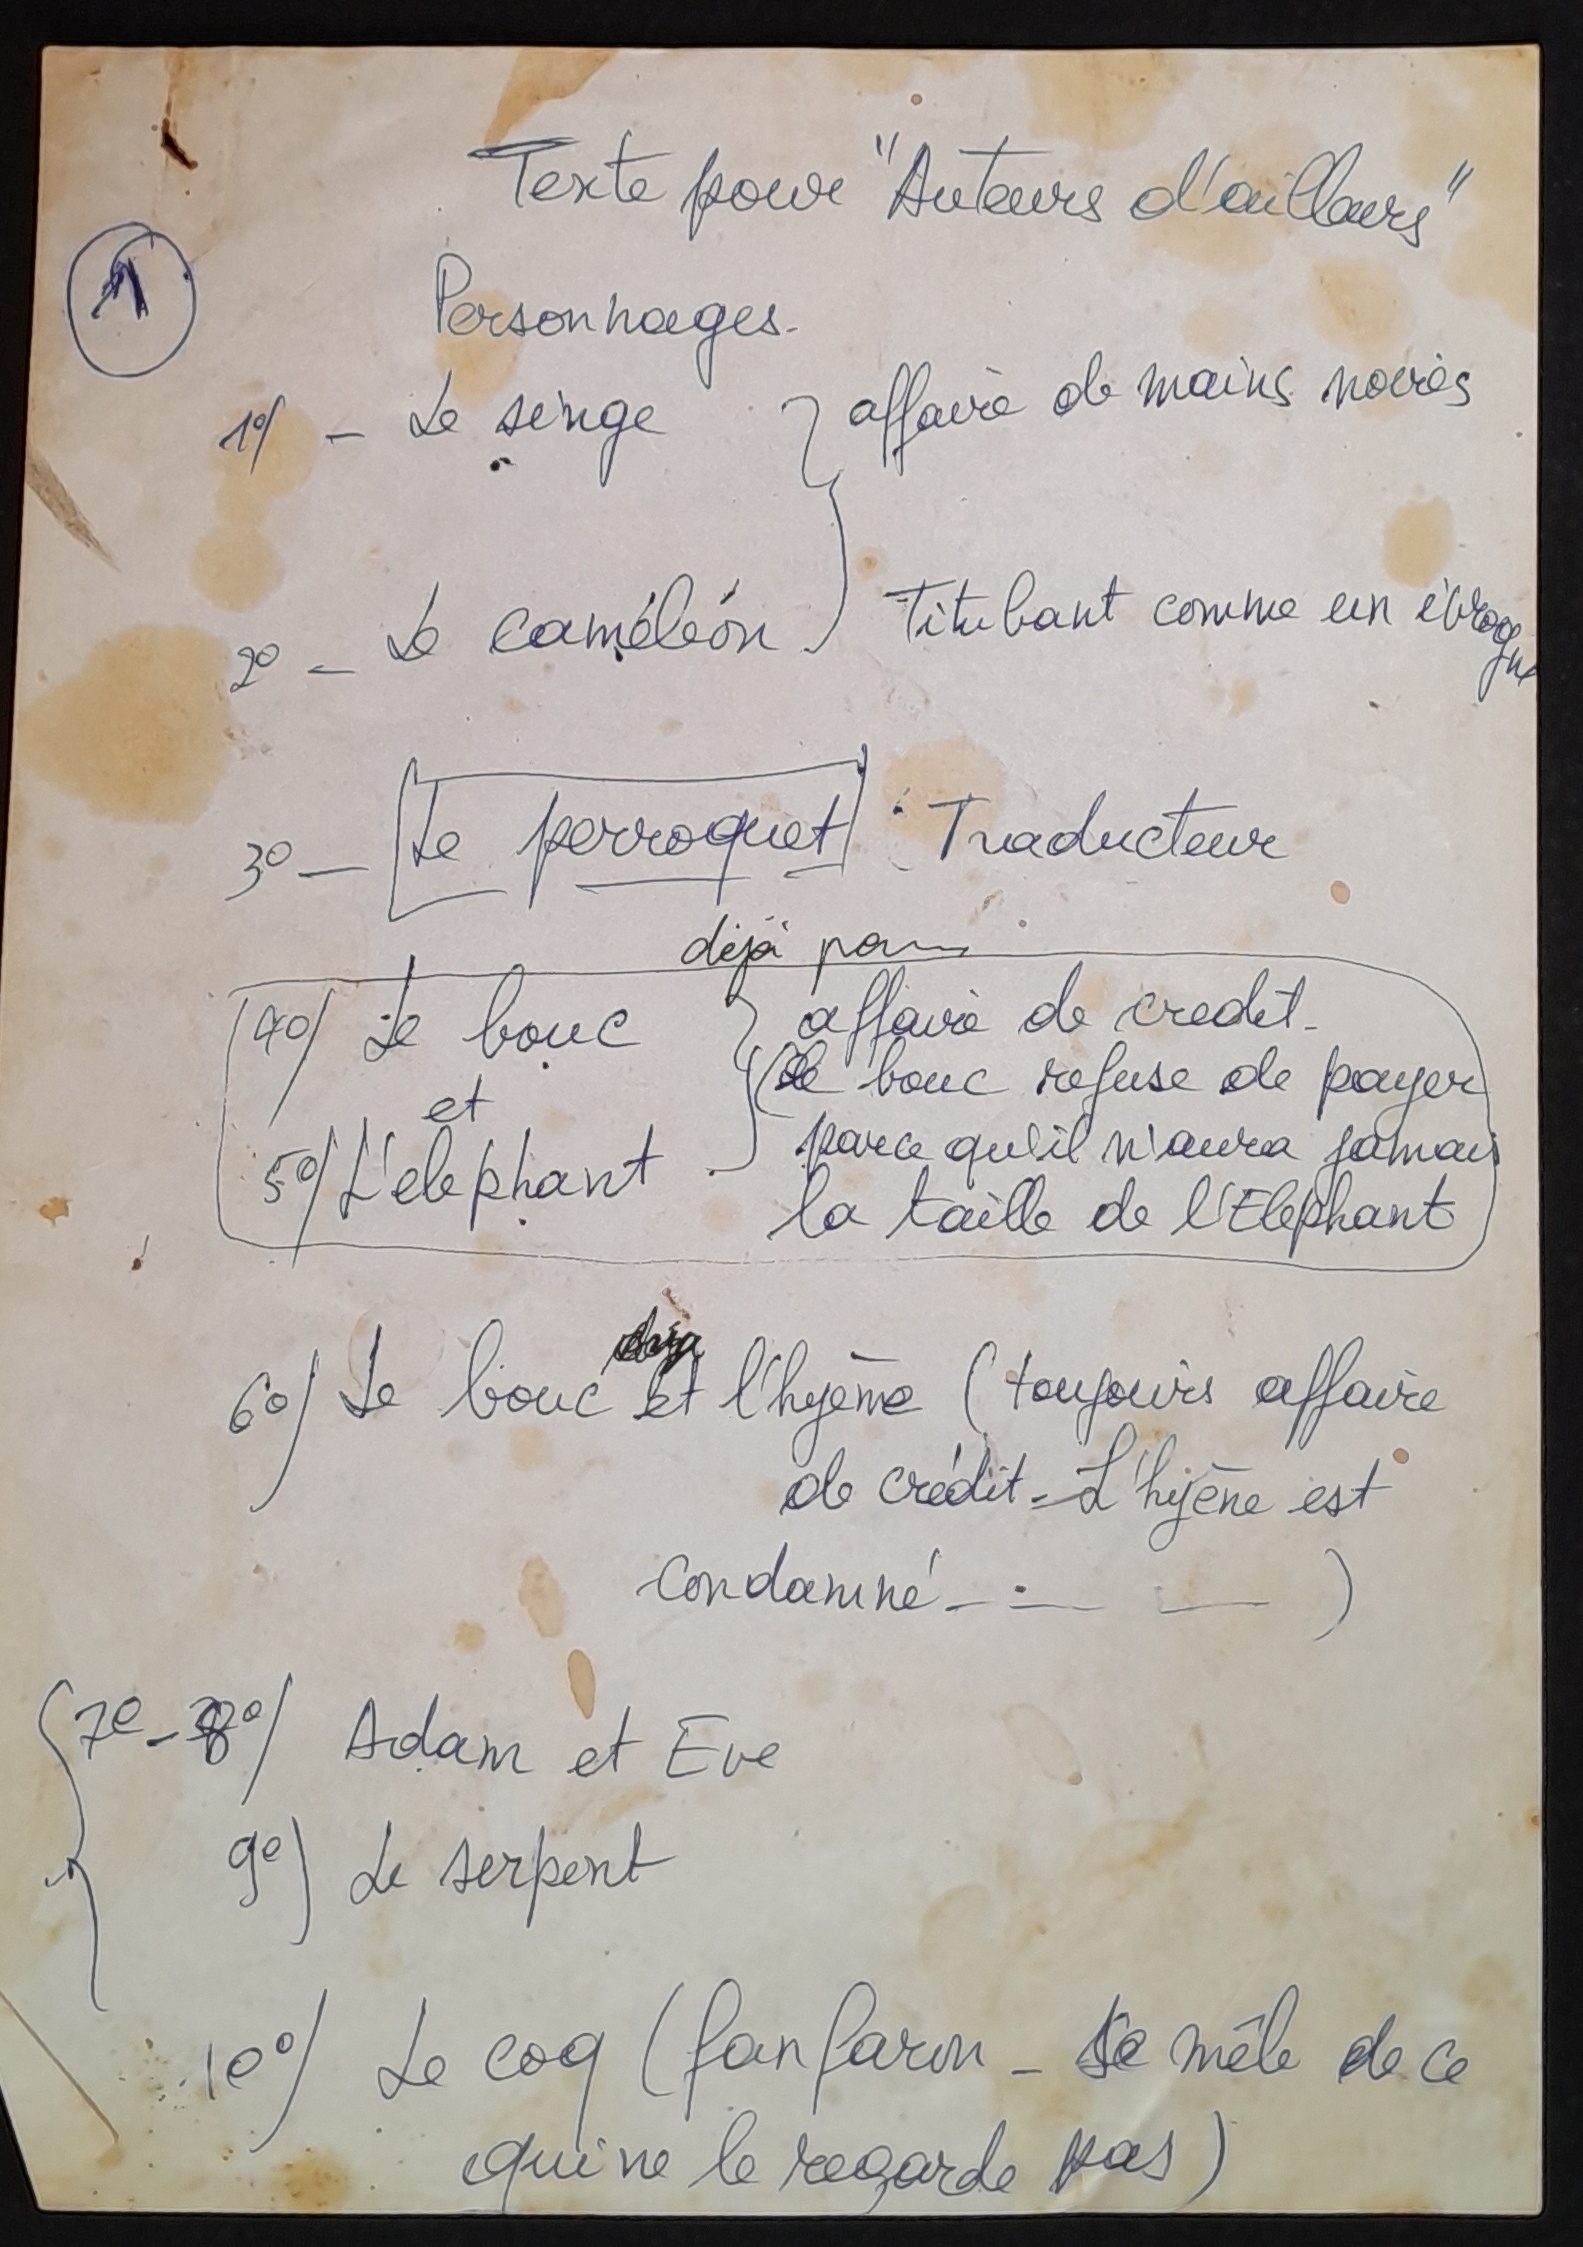 Texte pour "Auteurs d'ailleurs"
1
Personnages.
1°/ - Le singe } affaire de mains noires
2° - Le caméléon } Titubant comme un ivrogne
3° - Le perroquet : Traducteur
déjà
4°/ Le bouc } affaire de credit -
et (le bouc refuse de payer
5°/ L'elephant parce qu'il n'aura jamais
la taille de l'Elephant
6°/ Le bouc et l'hyène (toujours affaire
de crédit - L'hyène est
condamné - - - )
7° - 8°/ Adam et Eve
9°) Le serpent
10°/ Le coq (fanfaron - Se mêle de ce
qui ne le regarde pas)